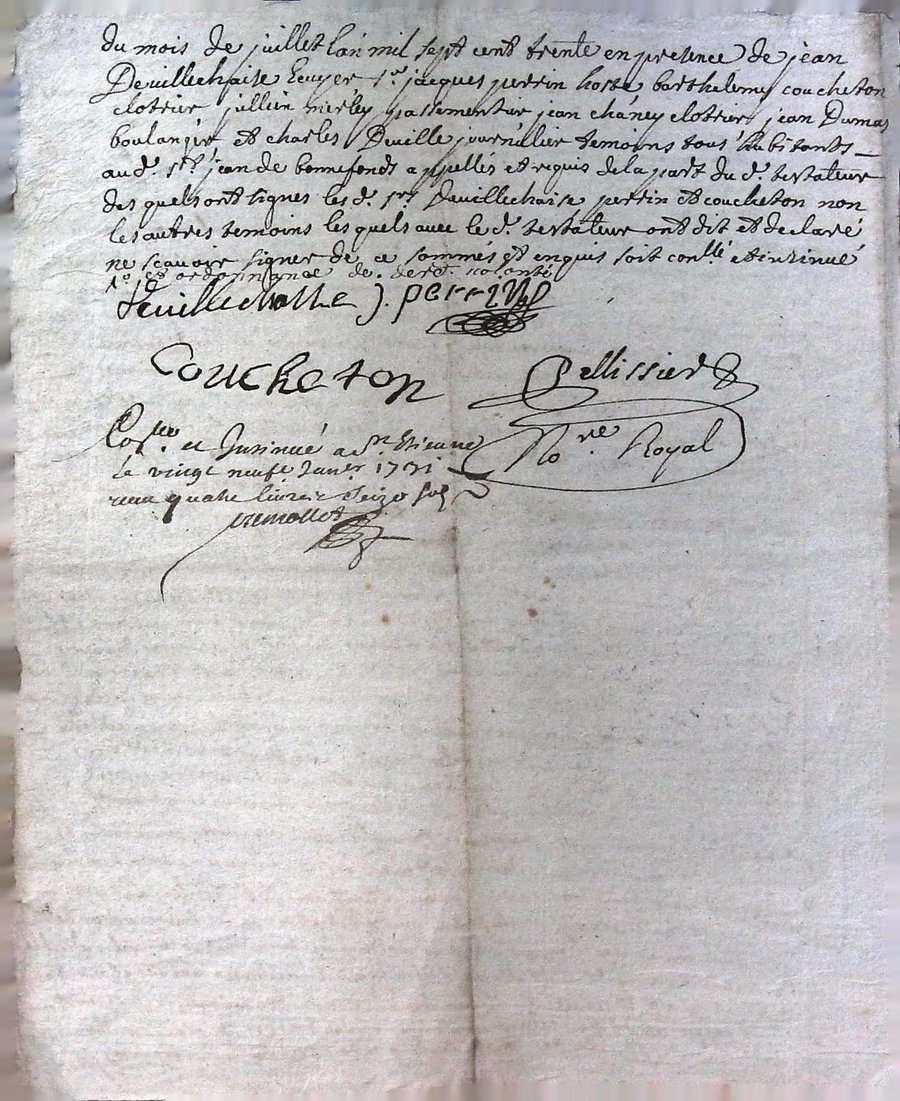 du mois de juillet lan mil sept cent trente en presence de jean
Deuillechaise Ecuyer sr. jacques perrin hoste barthelemy coucheton
clotrier jullien merley passementier jean chaney clotrier jean Dumas
boulangér et charles Deuille journallier temoins tous habitants
aud. st. jean de bonnefonds appellés et requis de la part du d. testateur
des quels ont signes les d. srs Deuillechaise perrin et coucheton non
les autres temoins les quels auec le d. testateur ont dit et declaré
ne scauoir signer de ce sommés et enquis soit conllé et insinué
Deuillechaise J. perrin
Coucheton
Pellissier
Nore. Royal
et Insinué a St Etienne
le vingt neufe Januer 1731
receu quatre liures seize sols